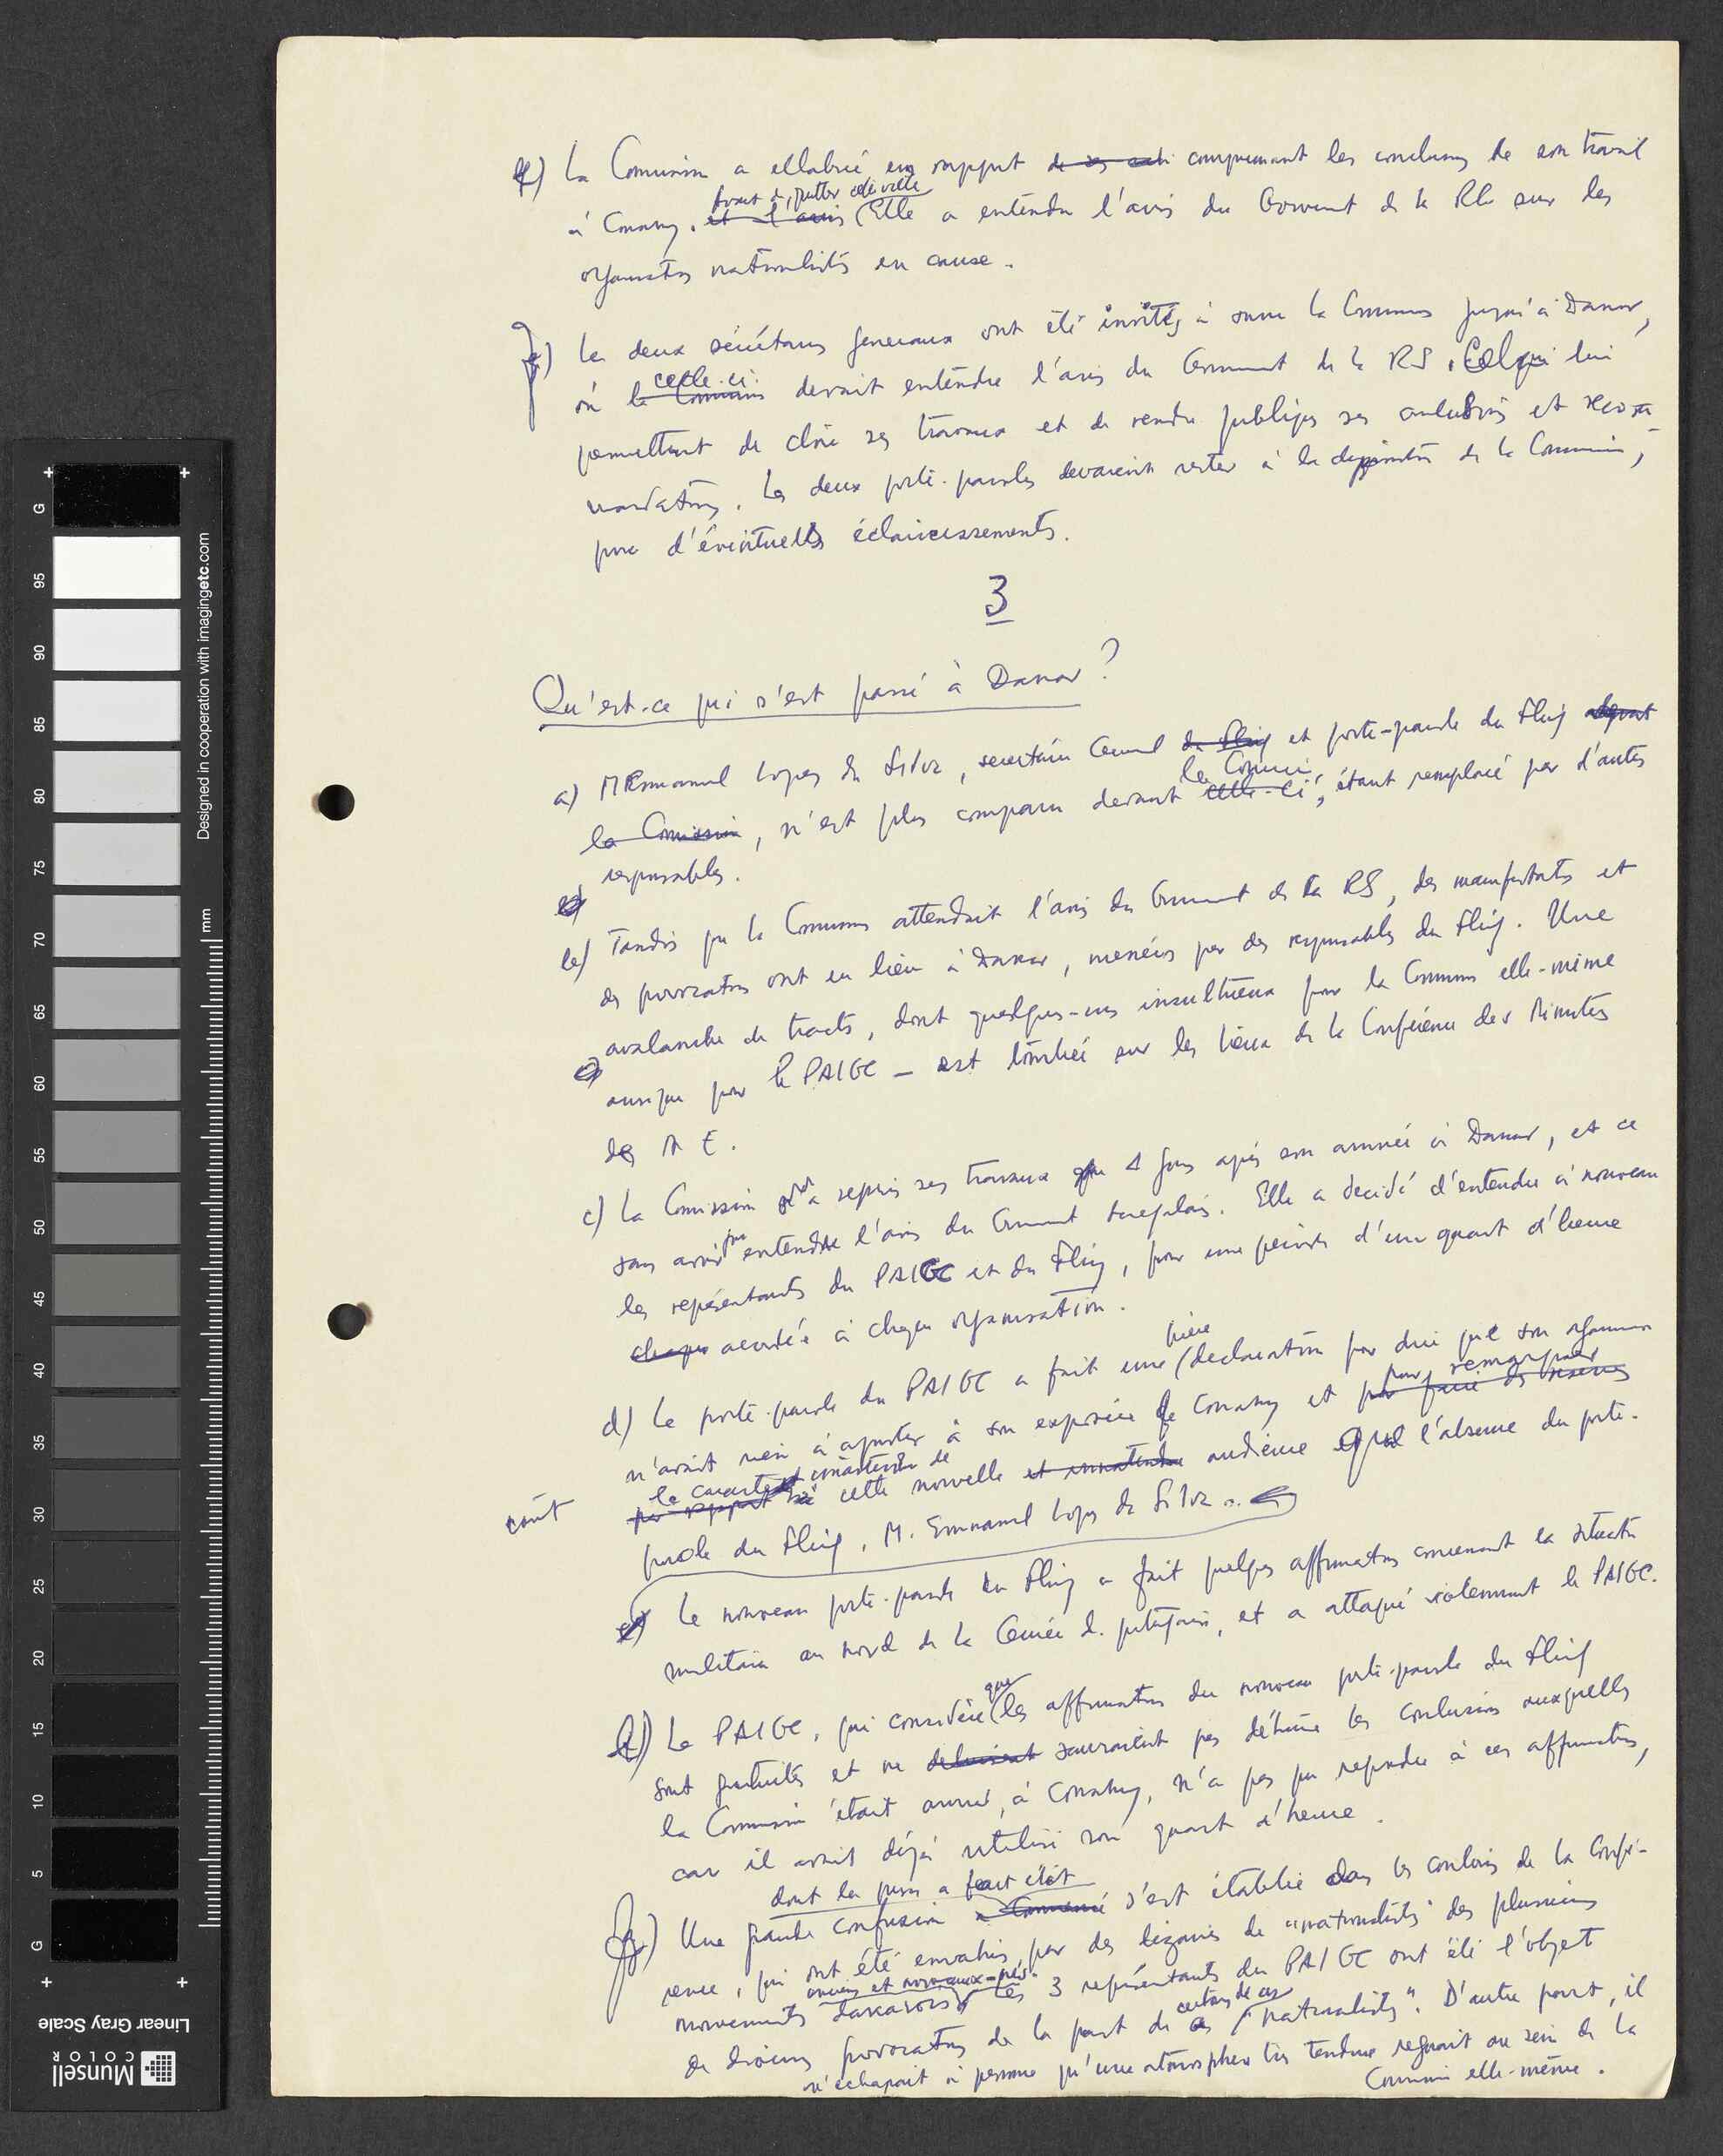 f) La Commission a ellaboré un rapport de ses comprenant les conclusions de son travail
avant de quitter cette ville
à Conakry. et l'avis (Elle a entendu l'avis du Gouvernement de la RG sur les
organisations nationalistes en cause.
g) Les deux sécrétaires generaux ont été invités à suivre la Commission jusqu'à Dakar,
celle-ci
où la Commission devrait entendre l'avis du Gouvernement de la RS. Ce qui lui
permettrait de clore ses travaux et de rendre publiques ses conclusions et recom-
mandations. Les deux porte-paroles devaient rester à la disposition de la Commission,
pour d'éventuells éclaircissements.
3
Qu'est-ce qui s'est passé à Dakar?
a) M Emmanuel Lopes da Silva, secrétaire General du Fling et porte-parole du Fling devant
la Commission
la Commission celle-ci, n'est plus comparu devant, étant remplacé par d'autres
responsables.
b) Tandis que la Commission attendait l'avis du Gouvernement de la RS, des manifestations et
des provocations ont eu lieu à Dakar, menées par des responsables du Fling. Une
avalanche de tracts, dont quelques-uns insultueux pour la Commission elle-même
ainsi que pour le PAIGC — est tombée sur les lieux de la Conférence des Ministres
des A E.
c) La Comission a repris ses travaux 4 jours après son arrivée à Dakar, et ce
sans avoir pu entendre l'avis du Gouvernement senegalais. Elle a decidé d'entendre à nouveau
les représentants du PAIGC et du Fling, pour une période d'un quart d'heure
chaque accordée à chaque organisation.
brève
d) Le porte-parole du PAIGC a fait une (declaration pour dire que son organisation
pour remarquer
n'avait rien à ajouter à son exposé de Conakry et pour faire des réserves
le caractère inattendu de
par rapport à cette nouvelle et inattendue audience et l'absence du porte-
parole du Fling, M. Emmanuel Lopes da Silva.
e) Le nouveau porte-parole du Fling a fait quelques affirmations concernant la situation
militaire au nord de la Guinée d. portugaise, et a attaqué violemment le PAIGC.
que
f) Le PAIGC, qui considère (les affirmations du nouveau porte-parole du Fling
sont gratuites et ne détruisent sauraient pas détruire les conclusions auxquelles
la Commission était arrivée, à Conakry, n'a pas pu repondre à ces affirmations,
car il avait déjà utilisé son quart d'heure.
dont la presse a fait état
g) Une grande confusion a commencé s'est établie dans les couloirs de la Confé-
rence, qui ont été envahis par des dizaines de "nationalistes" des plusieurs
anciens et nouveaux-nés
mouvements dakarois. Les 3 représentants du PAIGC ont été l'objet
certains de ces
de diverses provocations de la part de ces "nationalistes". D'autre part, il
n'échapait à personne qu'une atmosphère très tendue regnait au sein de la
Commission elle-même.